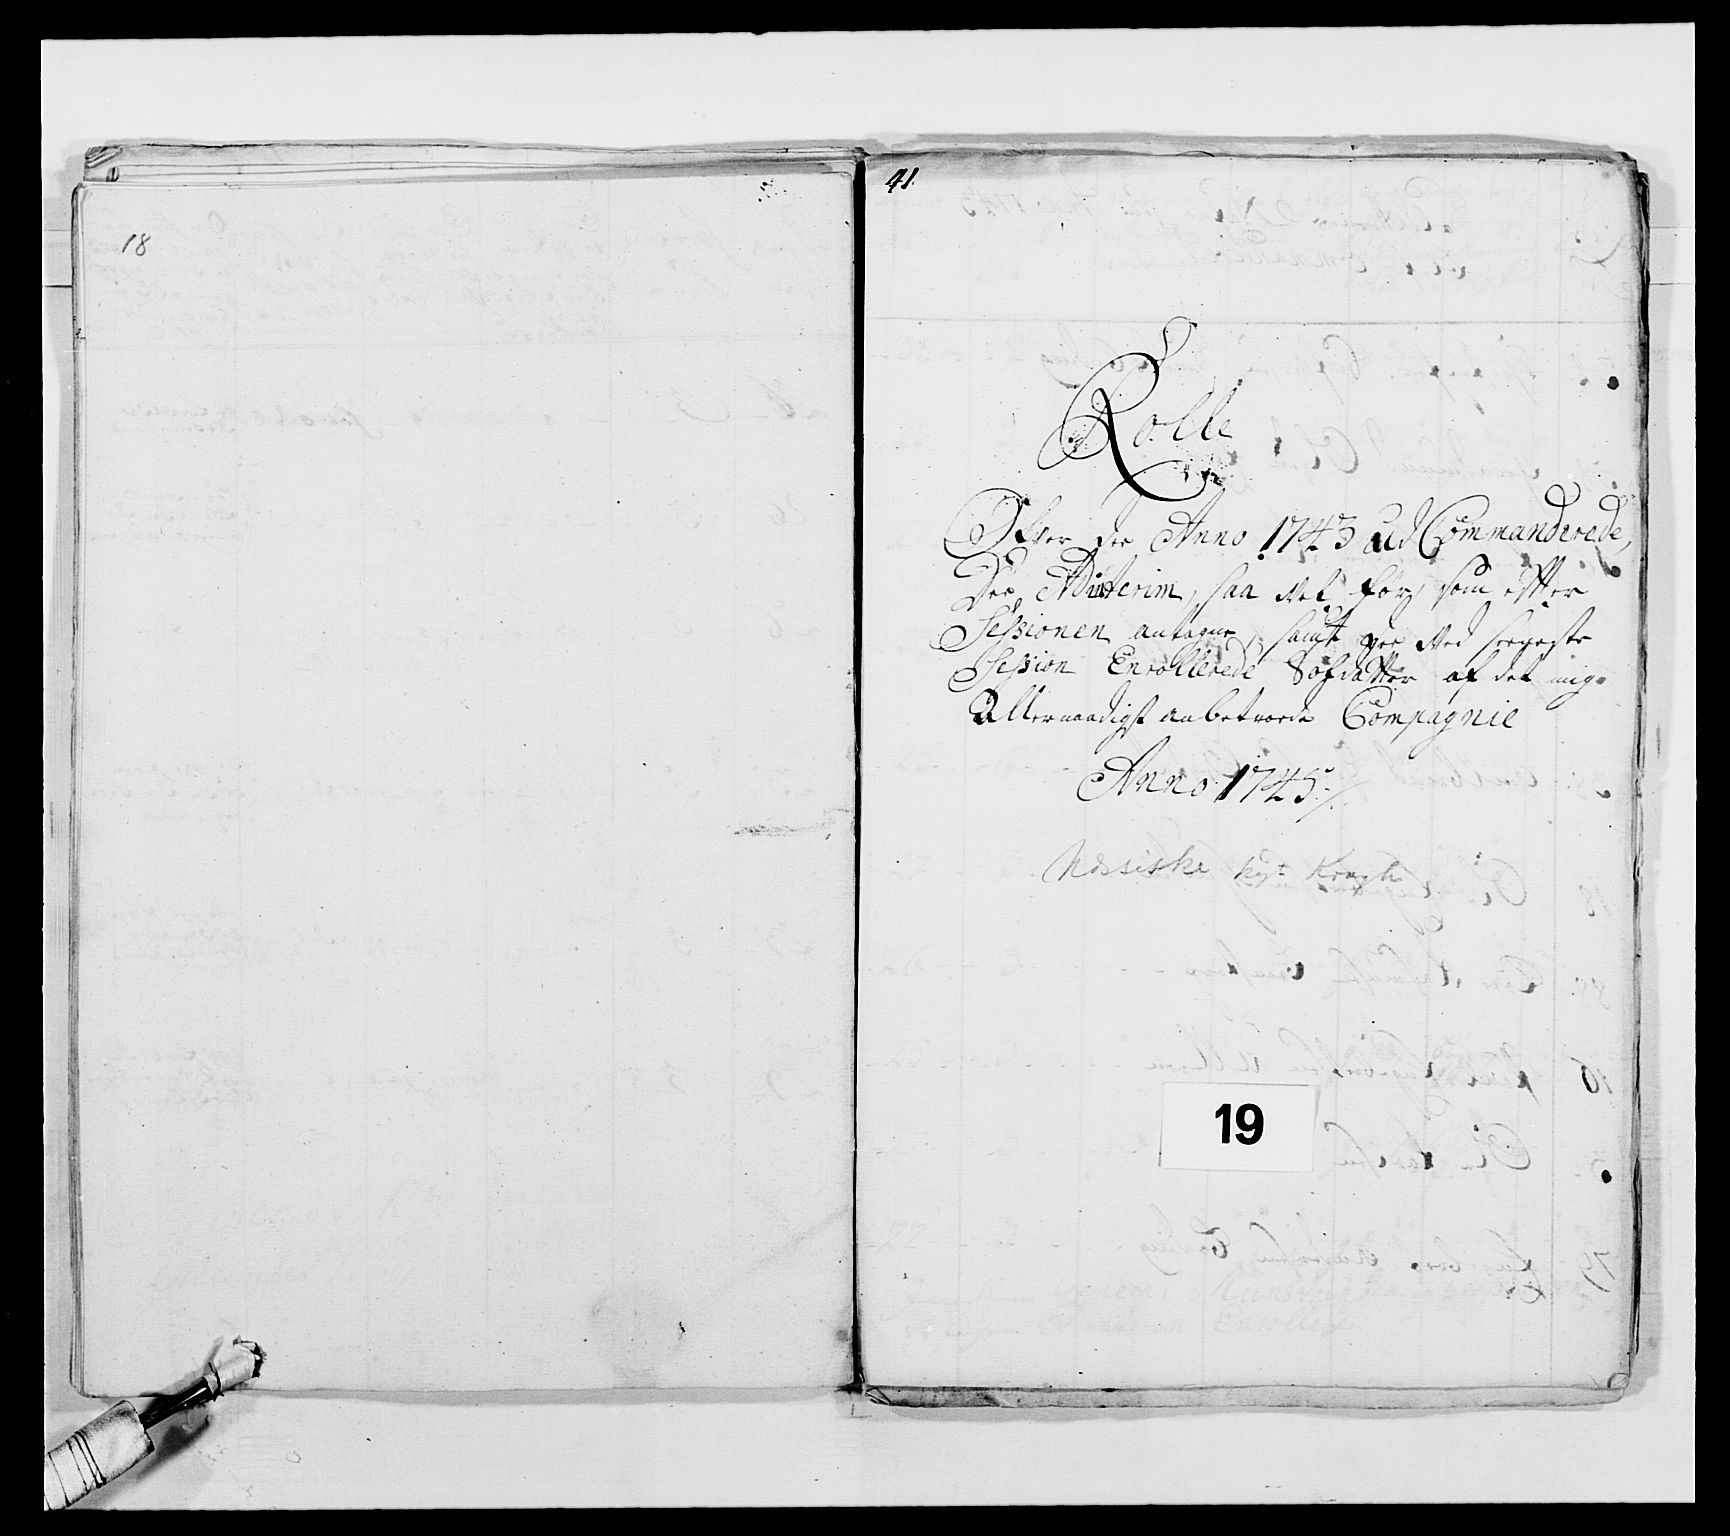 18
41.
Rolle
Ofver de Anno 1743 ud Commanderede,
De Adinterim, saa vel för som efter
Sessionen antagne, samt de ved seeneste
Session Enrollerede Soldatter af det mig
Allernaadigst anbetroede Compagnie
Anno 1745
Nessiske Kragh
19